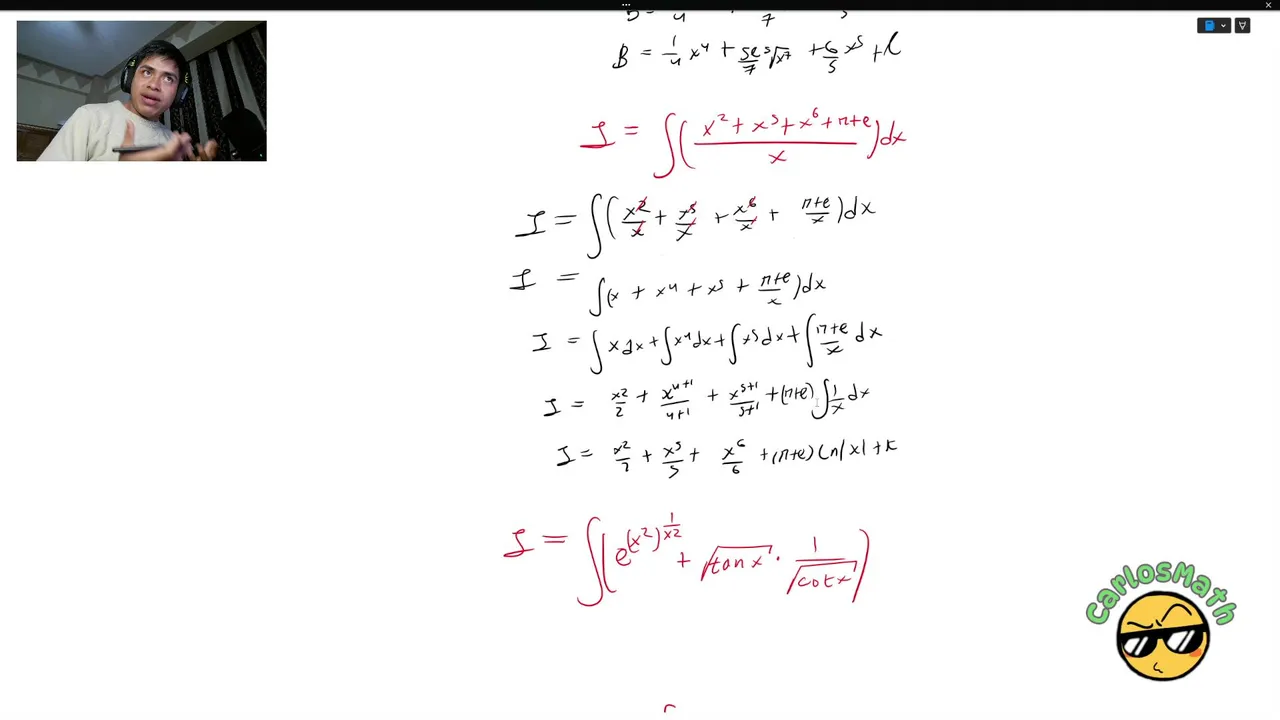 B = 1/4 x⁴ + 5e/7 ⁵√x⁷ + 6/5 x⁵ + C
I = ∫( (x² + x⁵ + x⁶ + π+e) / x )dx
I = ∫( x²/x + x⁵/x + x⁶/x + (π+e)/x )dx
I = ∫(x + x⁴ + x⁵ + (π+e)/x)dx
I = ∫xdx + ∫x⁴dx + ∫x⁵dx + ∫(π+e)/x dx
I = x²/2 + x⁴⁺¹/4+1 + x⁵⁺¹/5+1 + (π+e) ∫1/x dx
I = x²/2 + x⁵/5 + x⁶/6 + (π+e) Ln|x| + k
I = ∫(e^(x²)^(1/x2) + √tanx · 1/√cotx)
CarlosMath